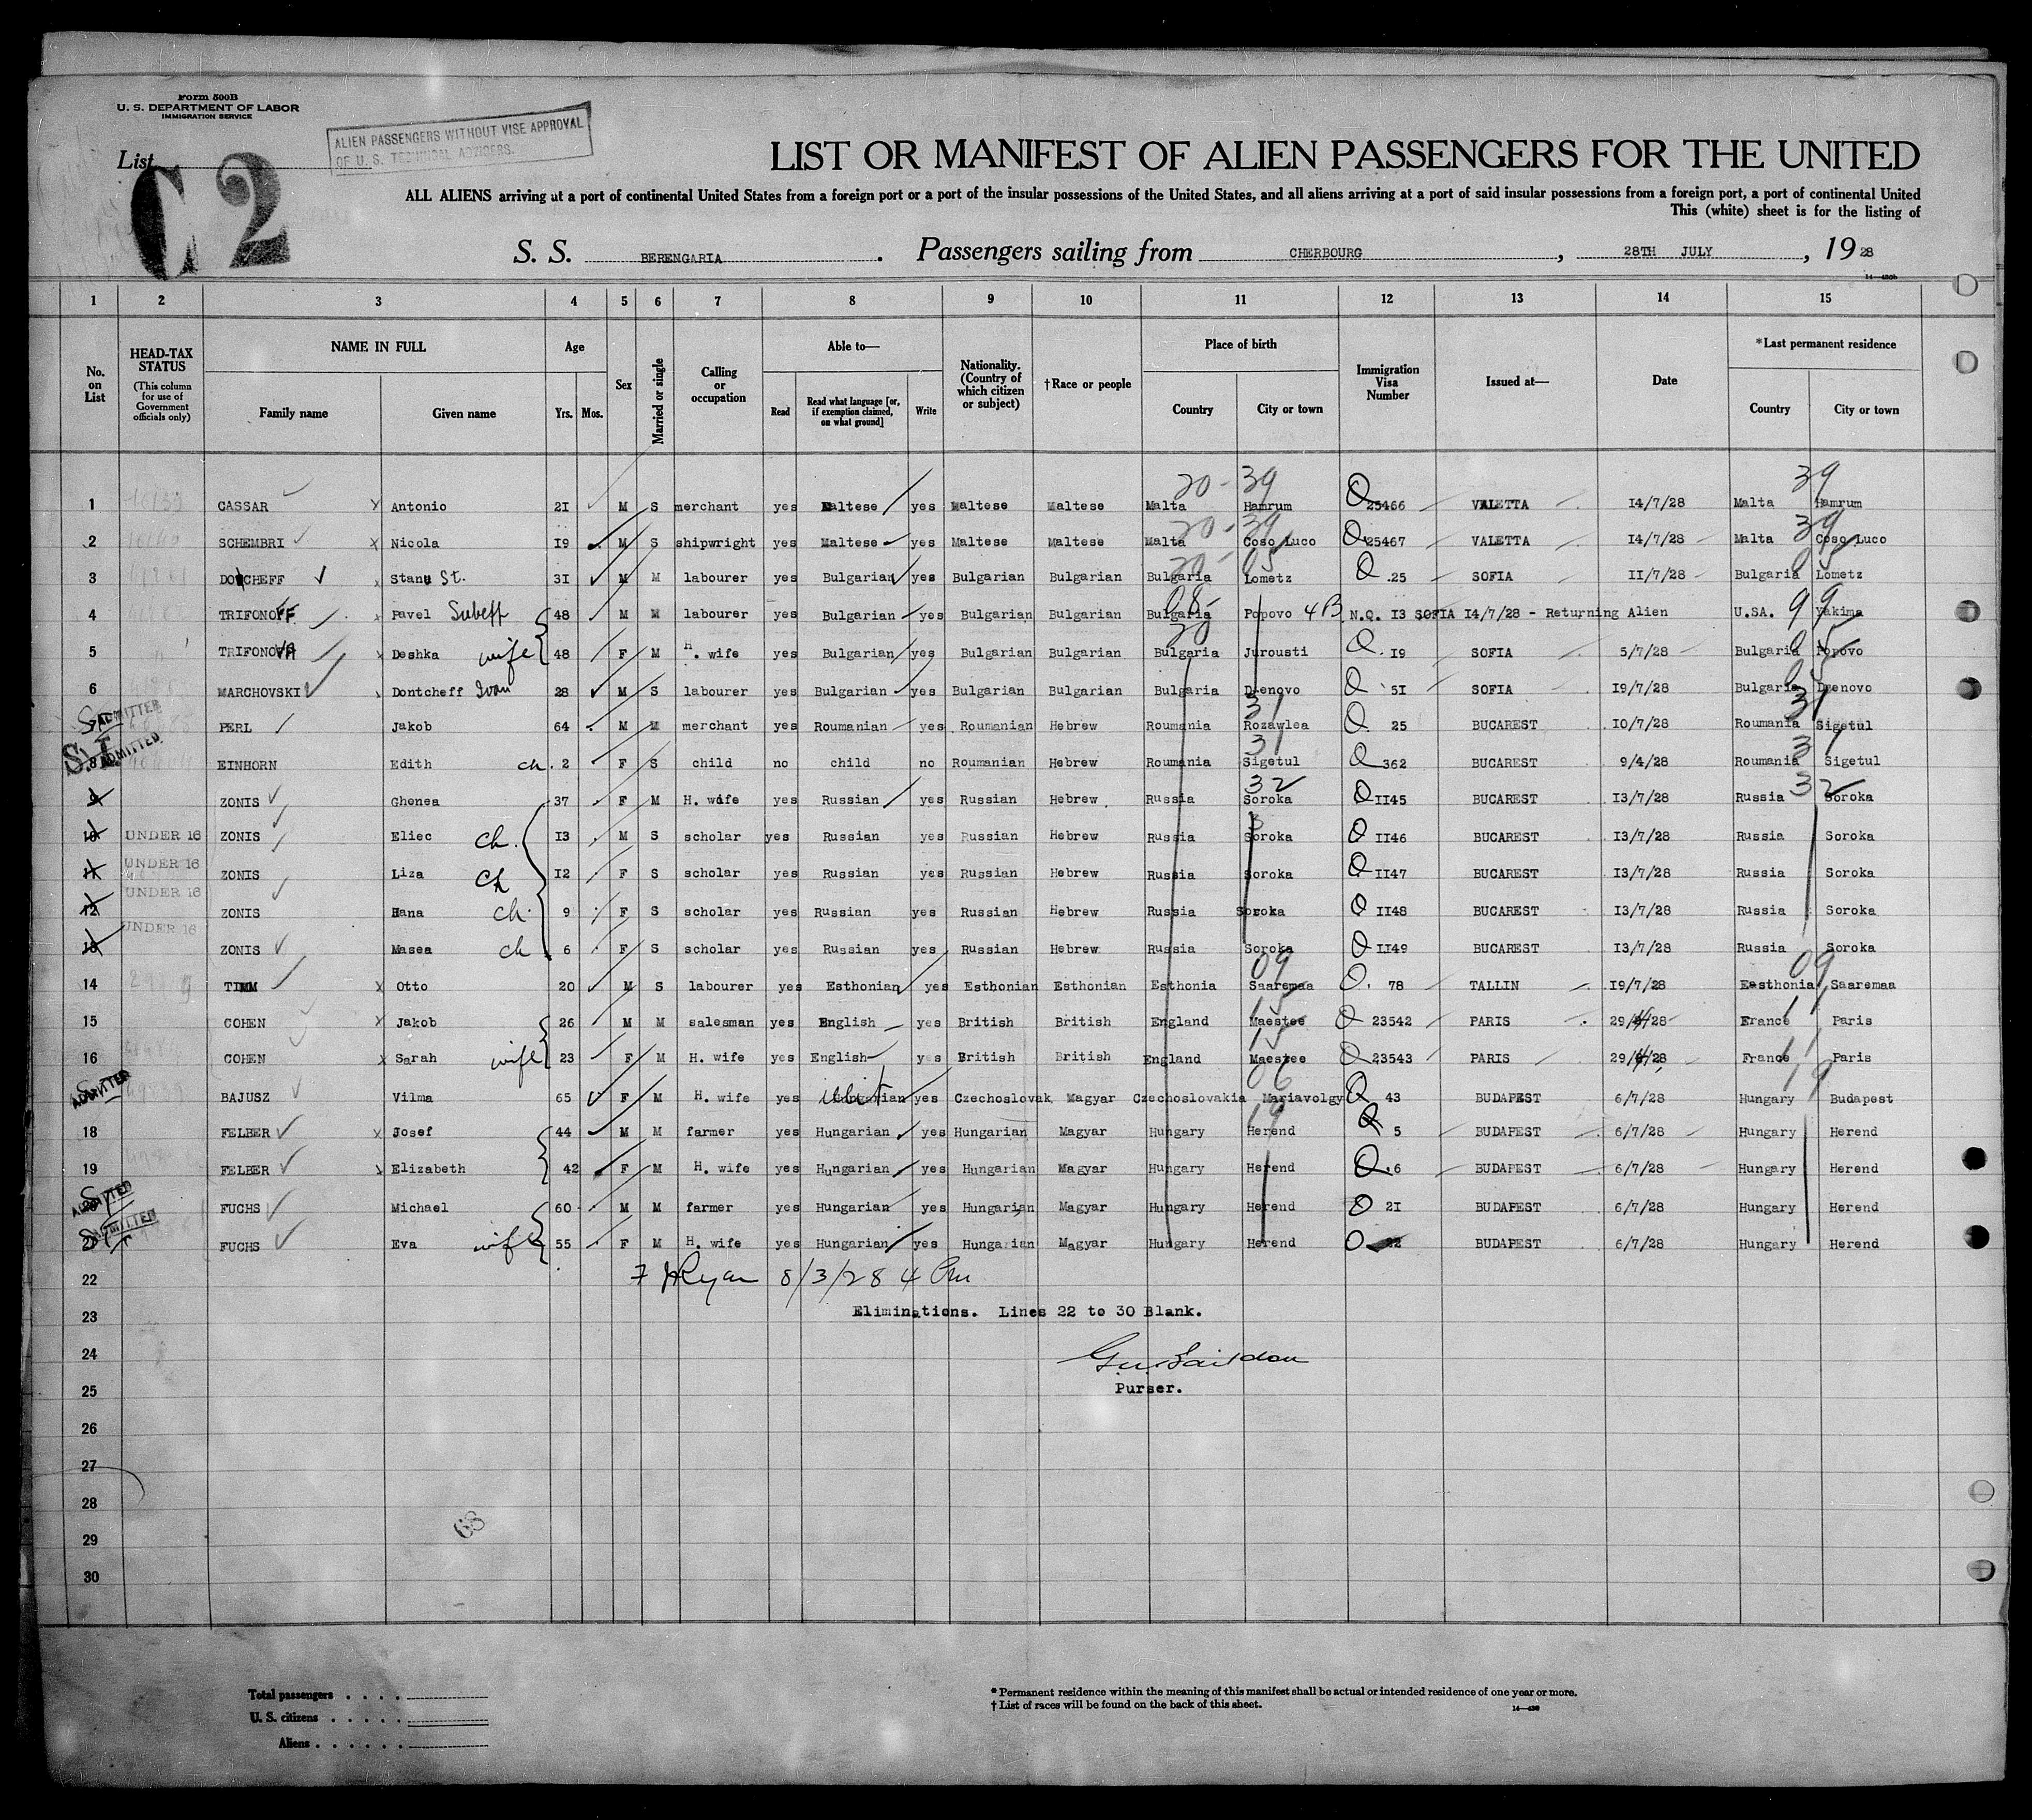 Form 500B
U. S. DEPARTMENT OF LABOR
IMMIGRATION SERVICE
ALIEN PASSENGERS WITHOUT VISE APPROVAL
OF U. S. TECHNICAL ADVISERS.
List
C 2
LIST OR MANIFEST OF ALIEN PASSENGERS FOR THE UNITED
ALL ALIENS arriving at a port of continental United States from a foreign port or a port of the insular possessions of the United States, and all aliens arriving at a port of said insular possessions from a foreign port, a port of continental United
This (white) sheet is for the listing of
S. S. BERENGARIA . Passengers sailing from CHERBOURG , 28TH JULY , 19 28
1 2 3 4 5 6 7 8 9 10 11 12 13 14 15
No. on List
HEAD-TAX STATUS (This column for use of Government officials only)
NAME IN FULL Family name Given name
Age Yrs. Mos.
Sex
Married or single
Calling or occupation
Able to— Read Read what language [or, if exemption claimed, on what ground] Write
Nationality. (Country of which citizen or subject)
†Race or people
Place of birth Country City or town
Immigration Visa Number
Issued at—
Date
*Last permanent residence Country City or town
20-39 39
1 CASSAR X Antonio 21 M S merchant yes Maltese yes Maltese Maltese Malta Hamrum Q 25466 VALETTA 14/7/28 Malta Hamrum
20-39 39
2 SCHEMBRI X Nicola 19 M S shipwright yes Maltese yes Maltese Maltese Malta Coso Luco Q 25467 VALETTA 14/7/28 Malta Coso Luco
20-05 05
3 DOTCHEFF Stanu St. 31 M M labourer yes Bulgarian yes Bulgarian Bulgarian Bulgaria Lometz Q 25 SOFIA 11/7/28 Bulgaria Lometz
4 TRIFONOFF Pavel Subeff 48 M M labourer yes Bulgarian yes Bulgarian Bulgarian Bulgaria Popovo 4B N.Q. 13 SOFIA 14/7/28 - Returning Alien U.SA. 99 Yakima
5 TRIFONOVA Deshka wife 48 F M H. wife yes Bulgarian yes Bulgarian Bulgarian Bulgaria Jurousti Q 19 SOFIA 5/7/28 Bulgaria Popovo
6 MARCHOVSKI Dontcheff Ivan 28 M S labourer yes Bulgarian yes Bulgarian Bulgarian Bulgaria Drenovo Q 51 SOFIA 19/7/28 Bulgaria Drenovo
ADMITTED 31 31
7 PERL Jakob 64 M M merchant yes Roumanian yes Roumanian Hebrew Roumania Rozavlea Q 25 BUCAREST 10/7/28 Roumania Sigetul
S.I. ADMITTED 31 31
8 EINHORN Edith ch. 2 F S child no child no Roumanian Hebrew Roumania Sigetul Q 362 BUCAREST 9/4/28 Roumania Sigetul
32 32
9 ZONIS Ghenea 37 F M H. wife yes Russian yes Russian Hebrew Russia Soroka Q 1145 BUCAREST 13/7/28 Russia Soroka
10 UNDER 16 ZONIS Eliec ch. 13 M S scholar yes Russian yes Russian Hebrew Russia Soroka Q 1146 BUCAREST 13/7/28 Russia Soroka
11 UNDER 16 ZONIS Liza ch 12 F S scholar yes Russian yes Russian Hebrew Russia Soroka Q 1147 BUCAREST 13/7/28 Russia Soroka
12 UNDER 16 ZONIS Hana ch. 9 F S scholar yes Russian yes Russian Hebrew Russia Soroka Q 1148 BUCAREST 13/7/28 Russia Soroka
13 UNDER 16 ZONIS Masea ch 6 F S scholar yes Russian yes Russian Hebrew Russia Soroka Q 1149 BUCAREST 13/7/28 Russia Soroka
09 09
14 TIMM X Otto 20 M S labourer yes Esthonian yes Esthonian Esthonian Esthonia Saaremaa Q 78 TALLIN 19/7/28 Easthonia Saaremaa
15 11
15 COHEN X Jakob 26 M M salesman yes English yes British British England Maestee Q 23542 PARIS 29/6/28 France Paris
15 11
16 COHEN X Sarah wife 23 F M H. wife yes English yes British British England Maestee Q 23543 PARIS 29/6/28 France Paris
06 19
ADMITTED BAJUSZ Vilma 65 F M H. wife yes Hungarian illit yes Czechoslovak Magyar Czechoslovakia Mariavolgy Q 43 BUDAPEST 6/7/28 Hungary Budapest
19
18 FELBER X Josef 44 M M farmer yes Hungarian yes Hungarian Magyar Hungary Herend Q 5 BUDAPEST 6/7/28 Hungary Herend
19 FELBER Elizabeth 42 F M H. wife yes Hungarian yes Hungarian Magyar Hungary Herend Q 6 BUDAPEST 6/7/28 Hungary Herend
ADMITTED 20 FUCHS Michael 60 M M farmer yes Hungarian yes Hungarian Magyar Hungary Herend Q 21 BUDAPEST 6/7/28 Hungary Herend
ADMITTED 21 FUCHS Eva wife 55 F M H. wife yes Hungarian yes Hungarian Magyar Hungary Herend Q 22 BUDAPEST 6/7/28 Hungary Herend
22 Ryan 8/3/28 4 Pm
23 Eliminations. Lines 22 to 30 Blank.
24
25 Purser.
26
27
28
29 68
30
Total passengers
U. S. citizens
Aliens
* Permanent residence within the meaning of this manifest shall be actual or intended residence of one year or more.
† List of races will be found on the back of this sheet.